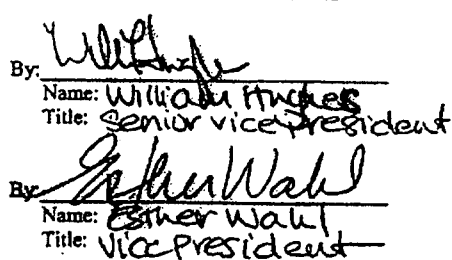 By: Will Hughes
Name: William Hughes
Title: Senior vice president
By: Esther Wahl
Name: Esther Wahl
Title: Vice president